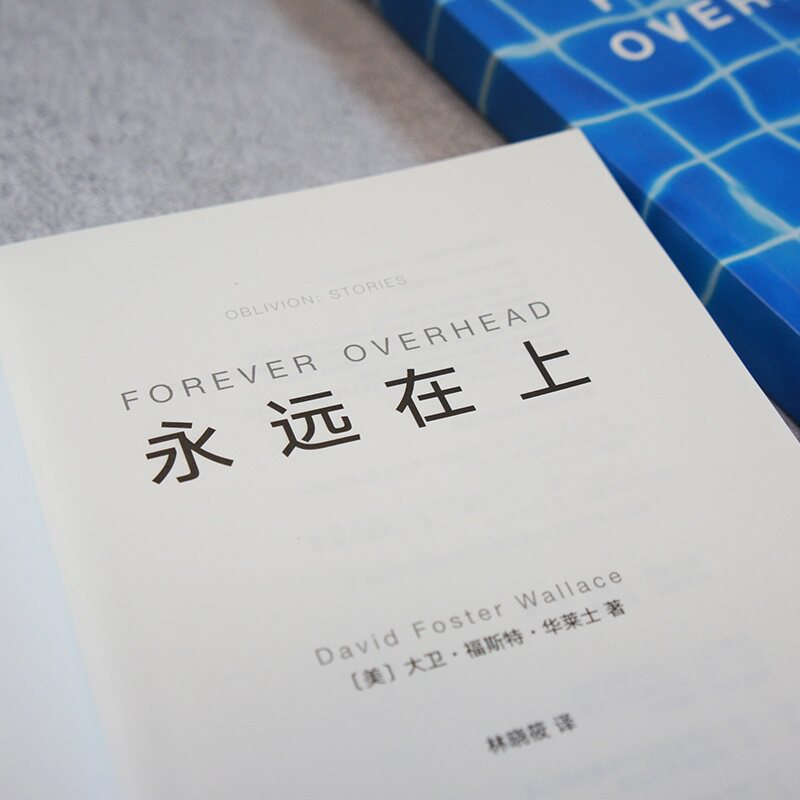 OVER
OBLIVION: STORIES
FOREVER OVERHEAD
永远在上
David Foster Wallace
[美] 大卫·福斯特·华莱士 著
林晓筱 译